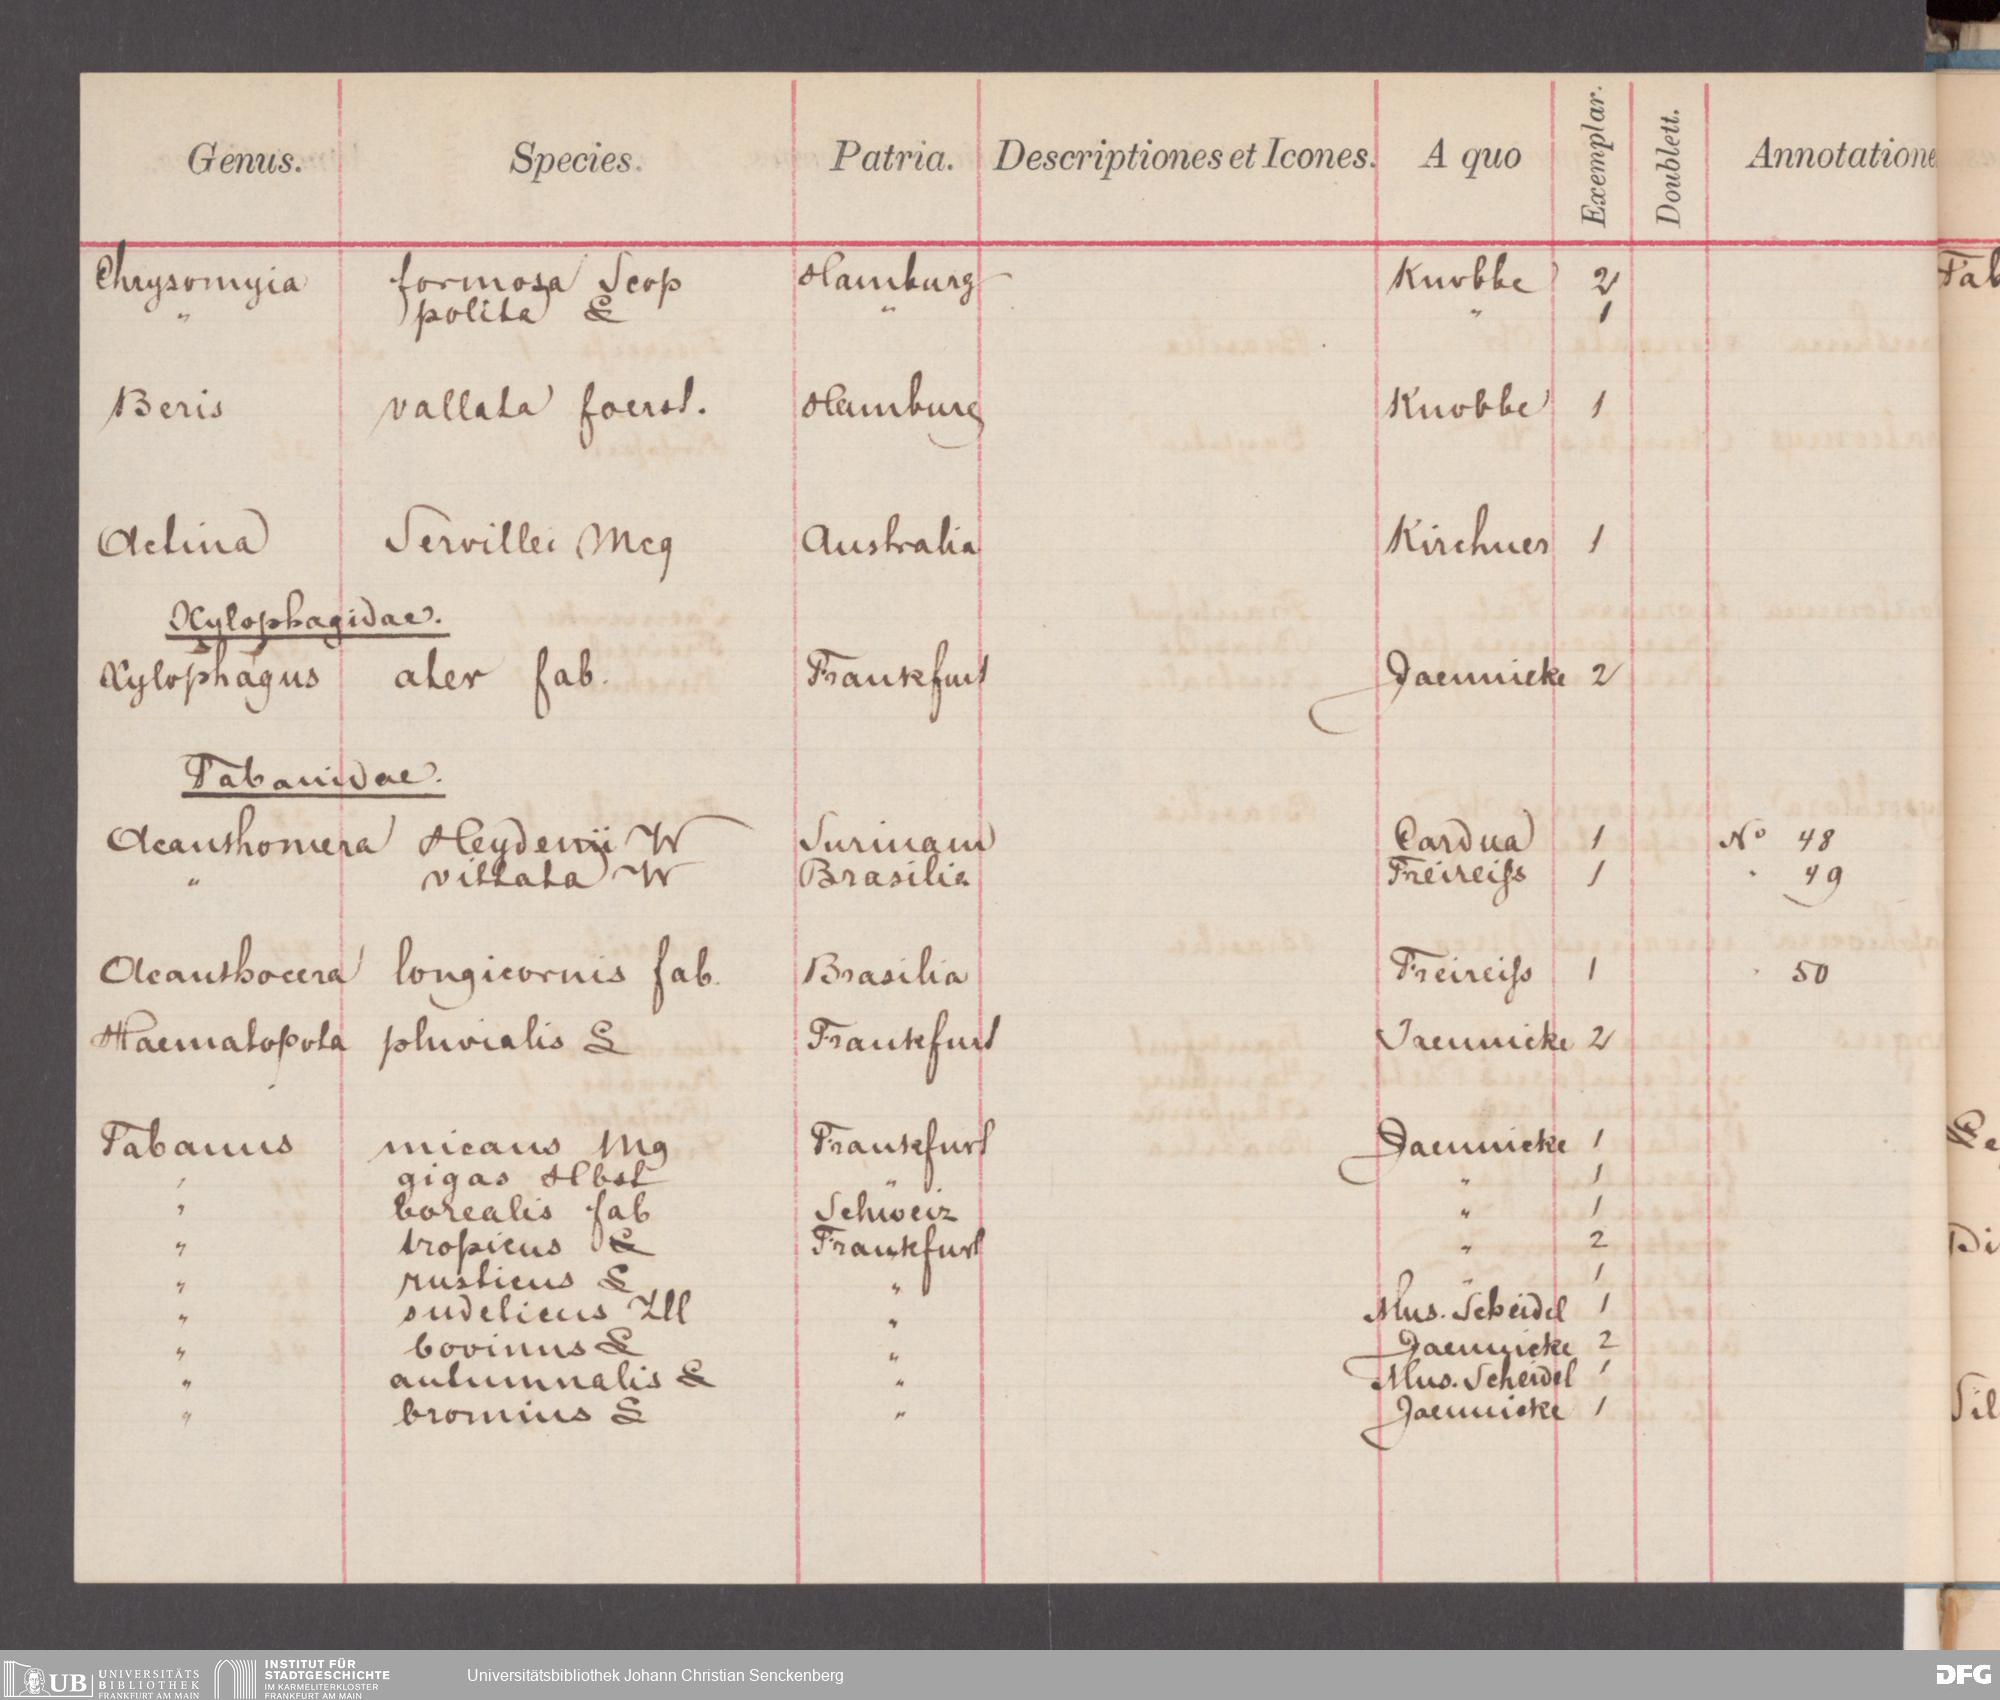 Genus. Species. Patria. Descriptiones et Icones. A quo Exemplar. Doublett. Annotatione
Chrysomyia formosa Scop Hamburg Knobbe 2
" polita L " " 1
Beris vallata foerst. Hamburg Knobbe 1
Actina Servillei Mcq Australia Kirchner 1
Xylophagidae.
Xylophagus ater fab. Frankfurt Jaennicke 2
Tabanidae.
Acanthomera Heydenii W Surinam Cardua 1 No 48
" vittata W Brasilia Freireiss 1 " 49
Acanthocera longicornis fab. Brasilia Freireiss 1 " 50
Haematopota pluvialis L Frankfurt Jaennicke 2
Tabanus micans Mg Frankfurt Jaennicke 1
" gigas Hbst " " 1
" borealis fab Schweiz " 1
" tropicus L Frankfurt " 2
" rusticus L " " 1
" sudeticus Zll " Mus. Scheidel 1
" bovinus L " Jaennicke 2
" autumnalis L " Mus. Scheidel 1
" bromius L " Jaennicke 1
UB UNIVERSITÄTS BIBLIOTHEK FRANKFURT AM MAIN
INSTITUT FÜR STADTGESCHICHTE IM KARMELITERKLOSTER FRANKFURT AM MAIN
Universitätsbibliothek Johann Christian Senckenberg
DFG